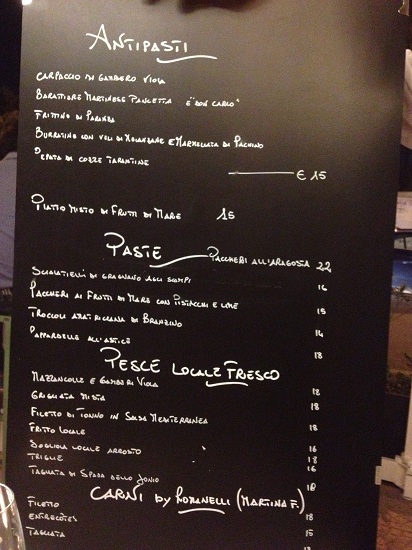 Antipasti
Carpaccio di Gambero Viola
Barattiere Martinese Pancetta e "Don Carlo"
Frittino di Paranza
Burratine con veli di Melanzane e Marmellata di Pachino
Pepata di Cozze Tarantine
€ 15
Piatto Misto di Frutti di Mare 15
Paste
Paccheri all'Aragosta 22
Scialatielli di Gragnano agli Scampi 16
Paccheri ai Frutti di Mare con Pistacchi e Lime 15
Troccoli Amatriciana di Branzino 14
Pappardelle all'Astice 18
Pesce Locale Fresco
Mazzancolle e Gamberi Viola 18
Grigliata Mista 18
Filetto di Tonno in Salsa Mediterranea 18
Fritto Locale 16
Sogliola Locale Arrosto 18
Triglie 16
Tagliata di Spada dello Jonio 18
Carni by Romanelli (Martina F.)
Filetto 18
Entrecôtes 15
Tagliata